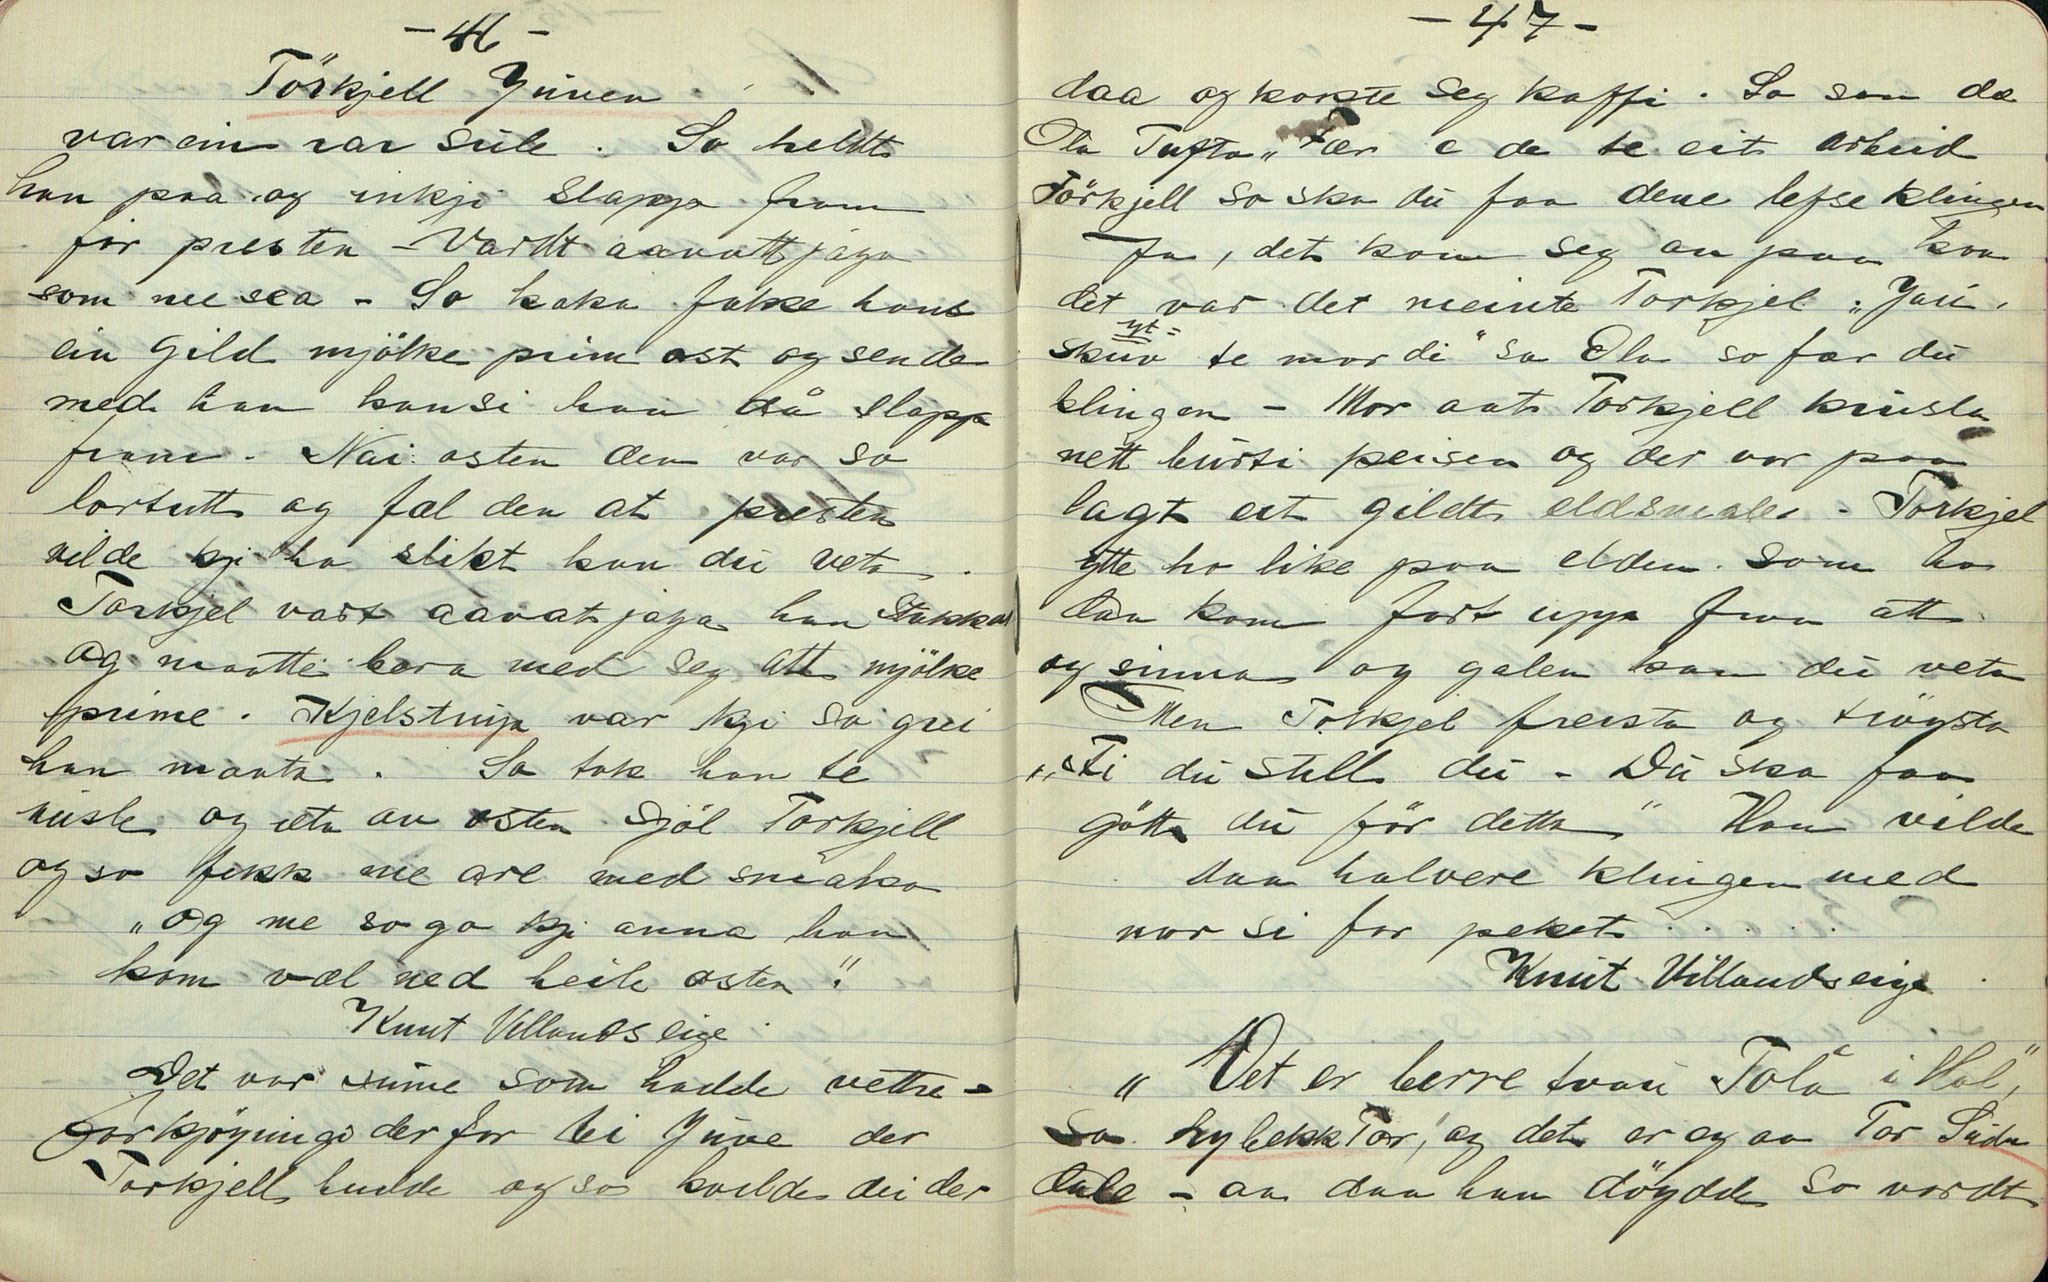 - 46 -
Törkjell Juven
var ein rar süle. So heldt
han paa og inkji slapp fram
for presten - Vardt aavatt jaga
som me sea - So koka fakke hans
ein gild mjölke prim ost og sende
med han kansi han då slapp
fram. Nai osten den var so
lortutt og fæl den at presten
vilde kji ha slikt kan du veta.
Torkjel vart aavatjaga han stakkar
og maatte bera med seg att mjölke
prime. Kjelstrup var kji so grei
han maata. So tok han te
eta an osten sjöl Torkjell
og so fekk me are med smaka
"og me so ga kji anna han
kom væl ned heile osten".
Knut Villandseige
Det var sume som hadde vettre-
forkjöyning der for bi Juve der
Torkjell budde og so kvilde dei der
- 47 -
daa og kokte seg kaffi. So son da
Ola Tufto „Her e de te eit arbeid
Törkjell so ska du faa dene lefseklingen
Ja, det kom seg an paa kva
det var det meinte Torkjel „Jau,
yt=
skuv te mor di" sa Ola so fær du
klingen - Mor aat Torkjell krusla
nett burti peisen og der var paa
lagt eit gildt eldsmale. - Torkjel
ytte ho like paa elden som ho
daa kom fort upp fraa att
og sinna og galen kan du veta
Men Torkjel freista og tröysta
„Ti du still du - Du ska faa
gött du för detta" Han vilde
daa halvere klingen med
mor si for peket......
Knut Villandseige.
„Det er berre tvau Tola i Hol",
sa hybekk Tor," og det er eg aa Tor Südn
Dale - aa daa han döydde so vardt